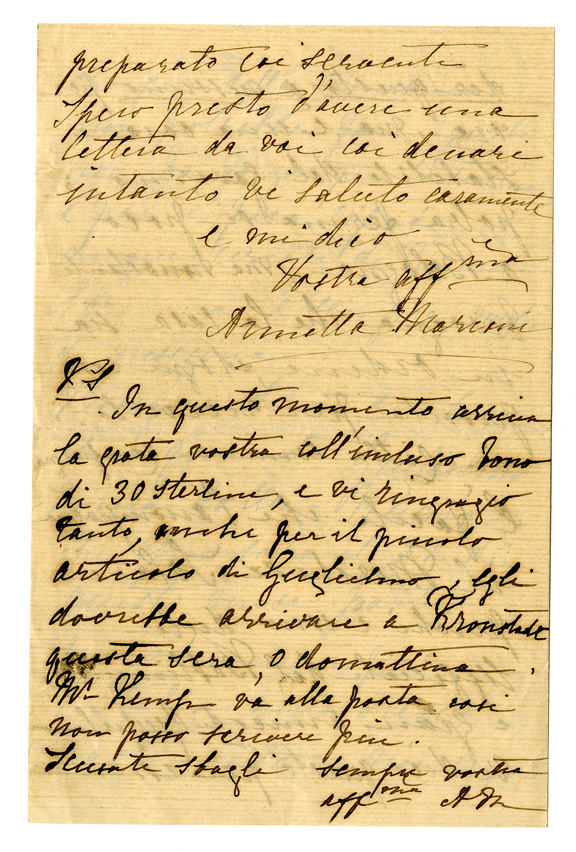 preparato coi serventi
Spero presto d'avere una
lettera da voi coi denari
intanto vi saluto caramente
e mi dico
Vostra aff ma
Annetta Marconi
PS
In questo momento arriva
la grata vostra coll'incluso bono
di 30 sterline, e vi ringrazio
tanto, anche per il piccolo
articolo di Guglielmo, egli
dovrebbe arrivare a Kronstadt
questa sera, o domattina.
Mr Kemp va alla posta cosi
non posso scrivere piu.
Scusate sbagli sempre vostra
aff ma A M